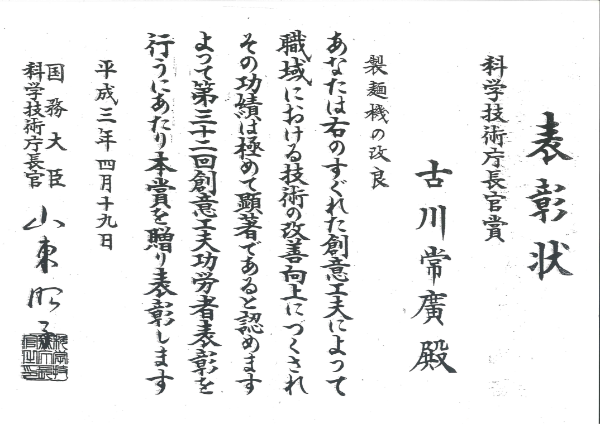 表彰状
科学技術庁長官賞
古川常廣殿
製麺機の改良
あなたは右のすぐれた創意工夫によって
職域における技術の改善向上につくされ
その功績は極めて顕著であると認めます
よって第三十二回創意工夫功労者表彰を
行うにあたり本賞を贈り表彰します
平成三年四月十九日
国務大臣
科学技術庁長官
山東昭子